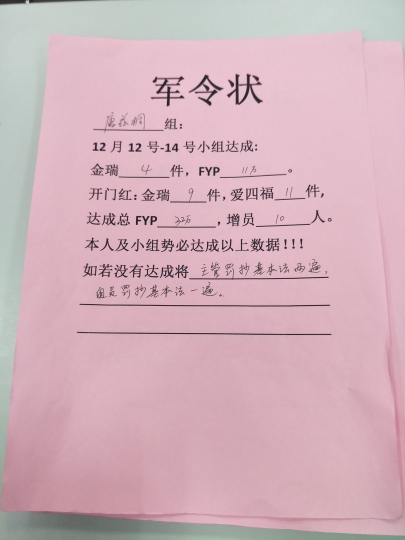 军令状
组:
12月12号-14号小组达成:
金瑞 4 件，FYP 11万。
开门红：金瑞 9 件，爱四福 11 件，
达成总FYP ，增员 10 人。
本人及小组势必达成以上数据！！！
如若没有达成将 主管罚抄基本法两遍，
组员罚抄基本法一遍。